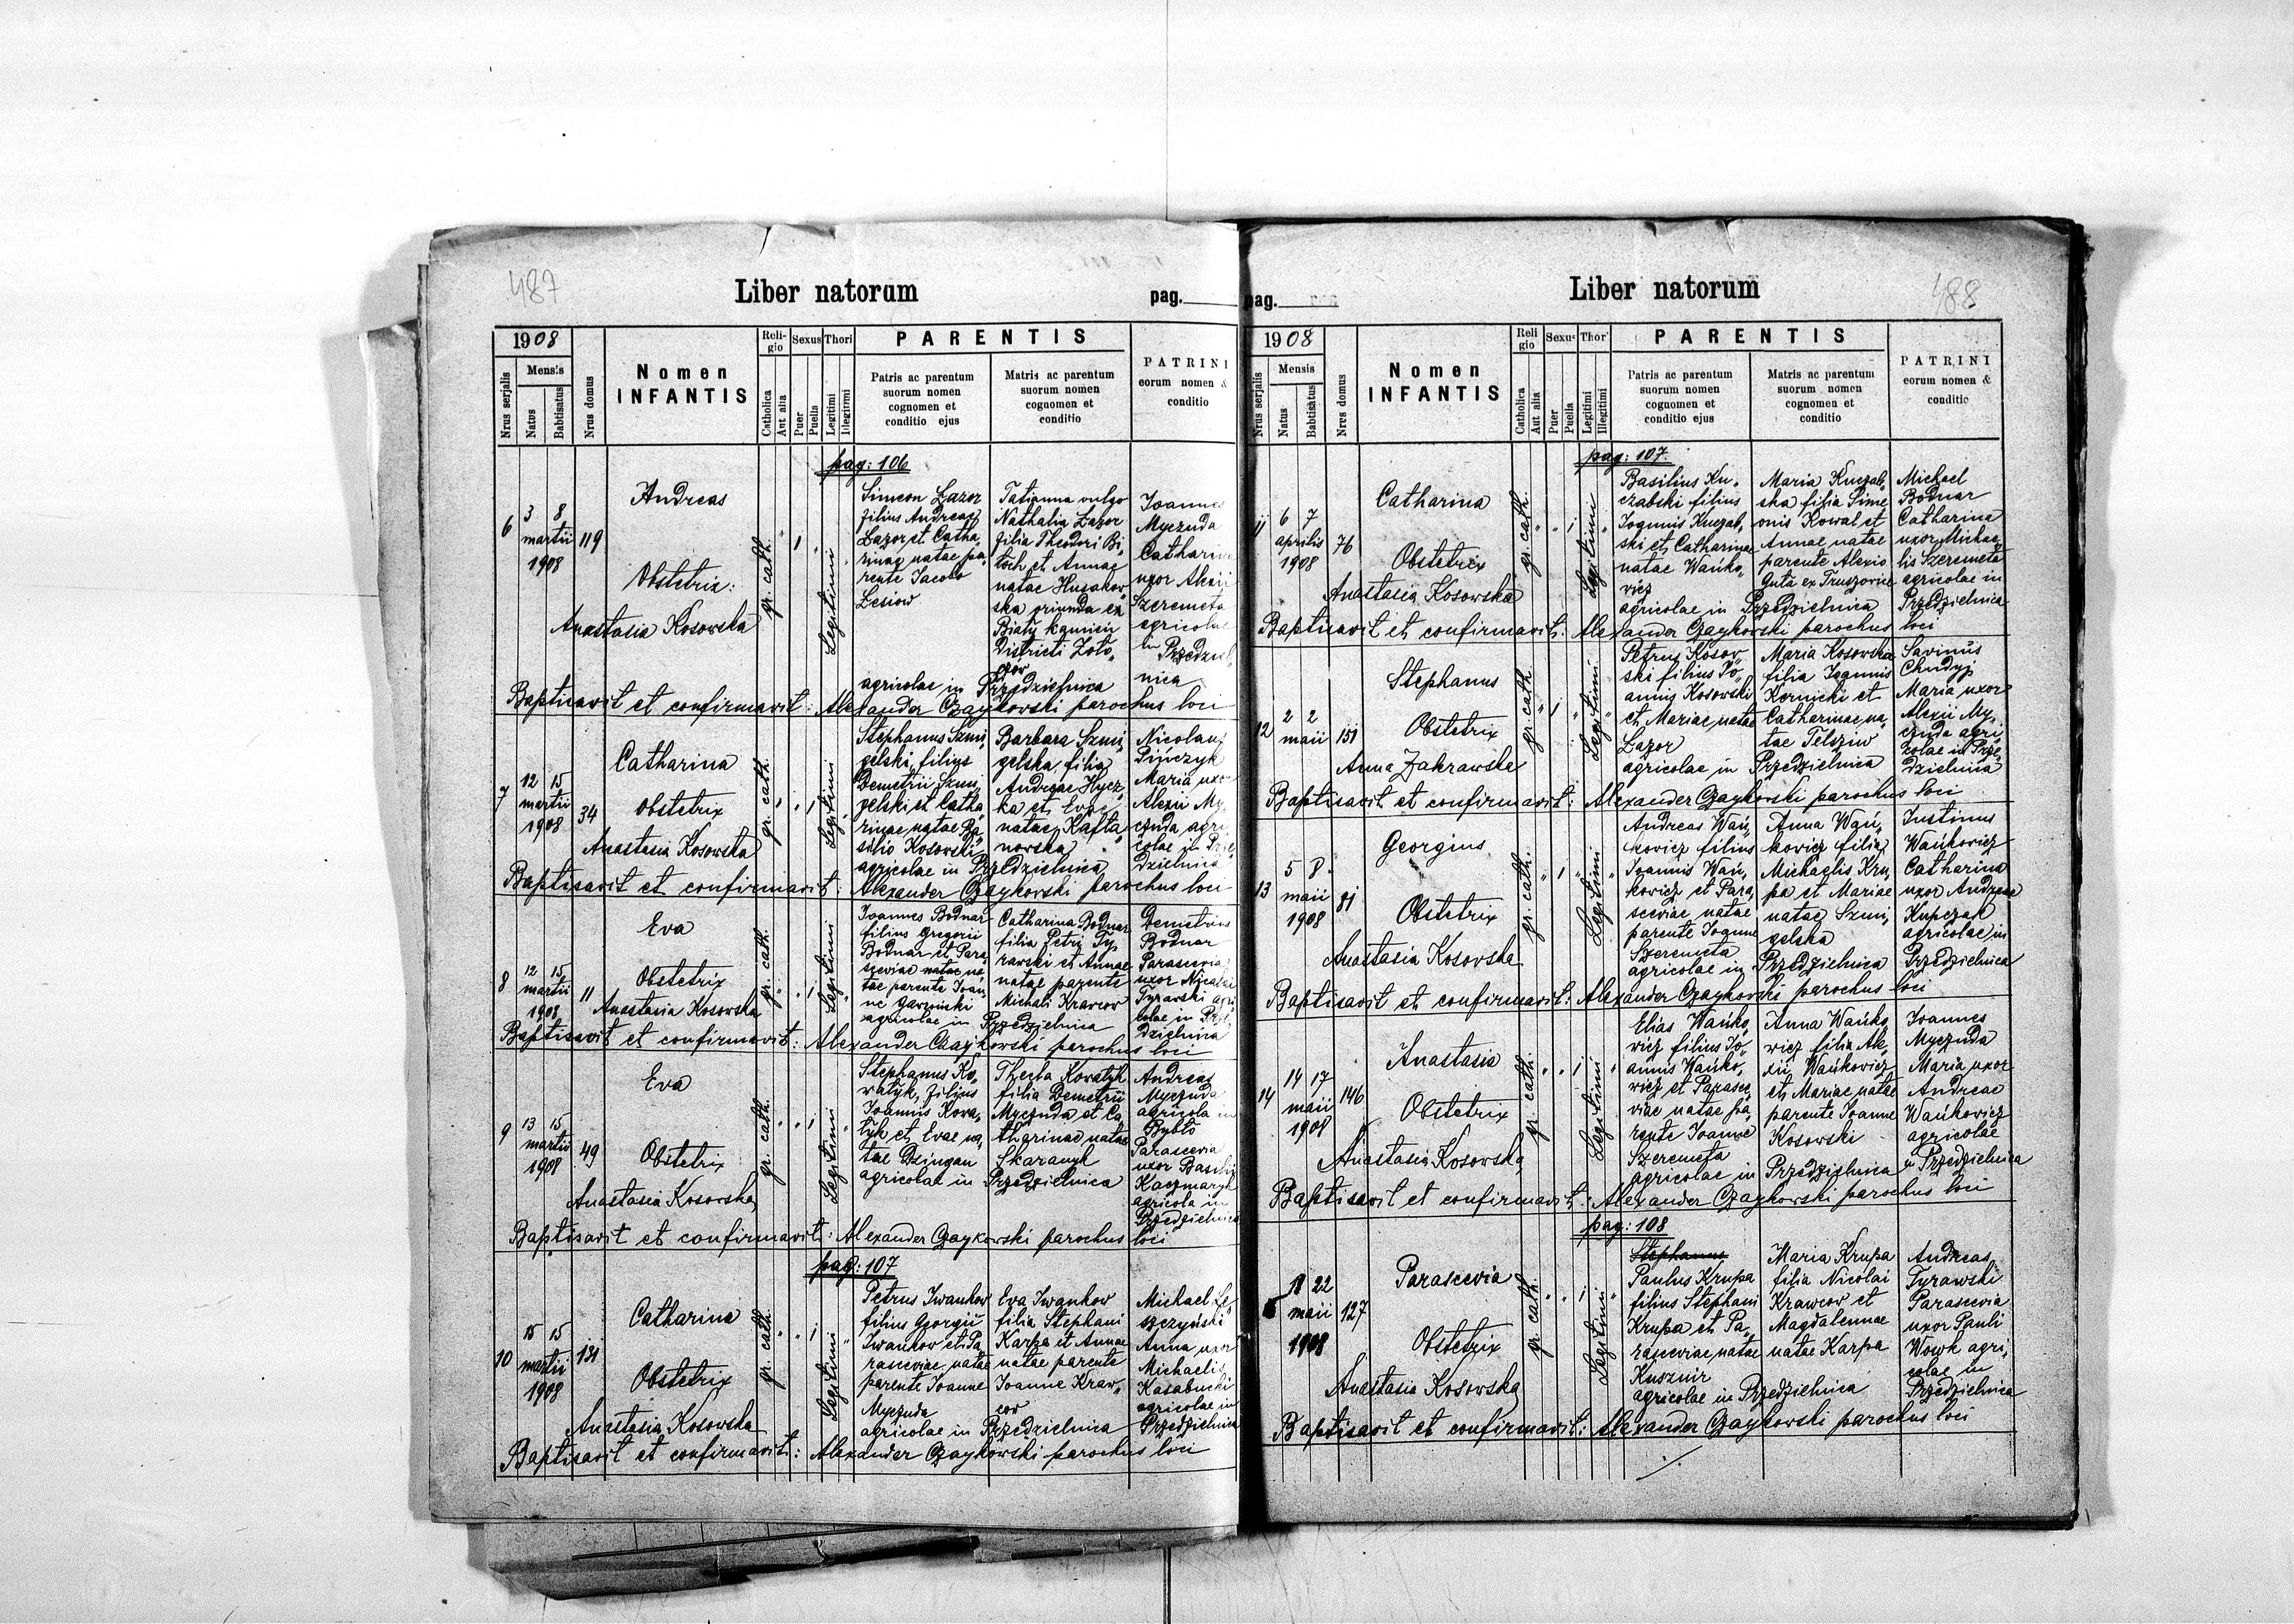 487
Liber natorum
pag.
1908
Nrus serjalis
Mensis
Natus
Babtisatus
Nrus domus
Nomen
INFANTIS
Religio
Catholica
Aut alia
Sexus
Puer
Puella
Thori
Legitimi
Illegitimi
PARENTIS
Patris ac parentum
suorum nomen
cognomen et
conditio ejus
Matris ac parentum
suorum nomen
cognomen et
conditio
PATRINI
eorum nomen &
conditio
pag: 106
6
3 8
martii
1908
119
Andreas
Obstetrix:
Anastasia Kosowska
gr. cath.
1
Legitimi
Simeon Łazor
filius Andreae
Łazor et Catha„
rinae natae pa„
rente Jacobo
Łesiow
Tatianna vulgo
Nathalia Łazor
filia Theodori Bi„
toch et Annae
natae Husakow„
ska oriunda ex
Biały kamień
Districti Zoło„
czow
Ioannes
Myczuda
Catharina
uxor Alexii
Szeremeta
agricolae
in Przedziel„
nica
agricolae in Przedzielnica
Baptisavit et confirmavit: Alexander Czaykowski parochus loci
7
12 15
martii
1908
34
Catharina
Obstetrix
Anastasia Kosowska
gr. cath.
1
Legitimi
Stephanus Szmi„
gelski, filius
Demetrii Szmi„
gelski et Catha„
rinae natae Ba„
silio Kosowski
Barbara Szmi„
gelska, filia
Andreae Hycz„
ka et Evae
natae Kafta„
nowska
Nicolaus
Pińczyk
Maria uxor
Alexii My„
czuda agri„
colae in Prze„
dzielnica
agricolae in Przedzielnica
Baptisavit et confirmavit: Alexander Czaykowski parochus loci
8
12 15
martii
1908
11
Eva
Obstetrix
Anastasia Kosowska
gr. cath.
1
Legitimi
Ioannes Bodnar
filius Gregorii
Bodnar et Para„
sceviae natae na„
tae parente Ioan„
ne Gawzinski
Catharina Bodnar
filia Petri Ty„
rawski et Annae
natae parente
Michali Krawcow
Demetrius
Bodnar
Parascevia
uxor Nicolai
Tyrawski agri„
colae in Prze„
dzielnica
agricolae in Przedzielnica
Baptisavit et confirmavit: Alexander Czaykowski parochus loci
9
13 15
martii
1908
49
Eva
Obstetrix
Anastasia Kosowska
gr. cath.
1
Legitimi
Stephanus Ko„
watyk, filius
Ioannis Kowa„
tyk et Evae na„
tae Dzingan
Thecla Kowatyk
filia Demetrii
Myczuda et Ca„
tharinae natae
Skaranyk
Andreas
Myczuda
agricola in
Bybło
Parascevia
uxor Basilii
Kaczmaryk
agricola in
Przedzielnica
agricolae in Przedzielnica
Baptisavit et confirmavit: Alexander Czaykowski parochus loci
pag: 107
10
15 15
martii
1908
131
Catharina
Obstetrix
Anastasia Kosowska
gr. cath.
1
Legitimi
Petrus Iwankow
filius Georgii
Iwankow et Pa„
rasceviae natae
parente Ioanne
Myczuda
Eva Iwankow
filia Stephani
Karpa et Annae
natae parente
Ioanne Kraw„
cow
Michael Le„
szczyński
Anna uxor
Michaelis
Kasabucki
agricolae in
Przedzielnica
agricolae in Przedzielnica
Baptisavit et confirmavit: Alexander Czaykowski parochus loci
488
Liber natorum
pag.
1908
Nrus serjalis
Mensis
Natus
Babtisatus
Nrus domus
Nomen
INFANTIS
Religio
Catholica
Aut alia
Sexus
Puer
Puella
Thor
Legitimi
Illegitimi
PARENTIS
Patris ac parentum
suorum nomen
cognomen et
conditio ejus
Matris ac parentum
suorum nomen
cognomen et
conditio
PATRINI
eorum nomen &
conditio
pag: 107.
11
6 7
aprilis
1908
76
Catharina
Obstetrix
Anastasia Kosowska
gr. cath.
1
Legitimi
Basilius Ku„
czabski filius
Ioannis Kuczab„
ski et Catharinae
natae Wańko„
wicz
Maria Kuczab„
ska filia Sime
onis Kowal et
Annae natae
parente Alexio
Guta ex Truszowice
Michael
Bodnar
Catharina
uxor Michae„
lis Szeremeta
agricolae in
Przedzielnica
agricolae in Przedzielnica
Baptisavit et confirmavit: Alexander Czaykowski parochus loci
12
2 2
maii
151
Stephanus
Obstetrix
Anna Zakrawska
gr. cath.
1
Legitimi
Petrus Kosow„
ski filius Io„
annis Kosowski
et Mariae natae
Łazor
Maria Kosowska
filia Ioannis
Kornicki et
Catharinae na„
tae Telsziw
Savinus
Chudyj
Maria uxor
Alexii My„
czuda agri„
colae in Prze„
dzielnica
agricolae in Przedzielnica
Baptisavit et confirmavit: Alexander Czaykowski parochus loci
13
5 8
maii
1908
81
Georgius
Obstetrix
Anastasia Kosowska
gr. cath.
1
Legitimi
Andreas Wań„
kowicz filius
Ioannis Wań„
kowicz et Para„
sceviae natae
parente Ioanne
Szeremeta
Anna Wań„
kowicz filia
Michaelis Kru„
pa et Mariae
natae Szmi„
gelska
Iustinus
Wańkowicz
Catharina
uxor Andreae
Kupczak
agricolae in
Przedzielnica
agricolae in Przedzielnica
Baptisavit et confirmavit: Alexander Czaykowski parochus loci
14
14 17
maii
1908
146
Anastasia
Obstetrix
Anastasia Kosowska
gr. cath.
1
Legitimi
Elias Wańko„
wicz filius Io„
annis Wańko„
wicz et Parasce„
viae natae pa„
rente Ioanne
Szeremeta
Anna Wańko
wicz filia Ale„
xii Wańkowicz
et Mariae natae
parente Ioanne
Kosowski
Ioannes
Myczuda
Maria uxor
Andreae
Wańkowicz
agricolae
in Przedzielnica
agricolae in Przedzielnica
Baptisavit et confirmavit: Alexander Czaykowski parochus loci
pag: 108
18 22
maii
1908
127
Parascevia
Obstetrix
Anastasia Kosowska
gr. cath.
1
Legitimi
Stephanus
Paulus Krupa
filius Stephani
Krupa et Pa„
rasceviae natae
Kusznir
Maria Krupa
filia Nicolai
Krawcow et
Magdalennae
natae Karpa
Andreas
Tyrawski
Parascevia
uxor Pauli
Wowk agri„
colae in
Przedzielnica
agricolae in Przedzielnica
Baptisavit et confirmavit: Alexander Czaykowski parochus loci